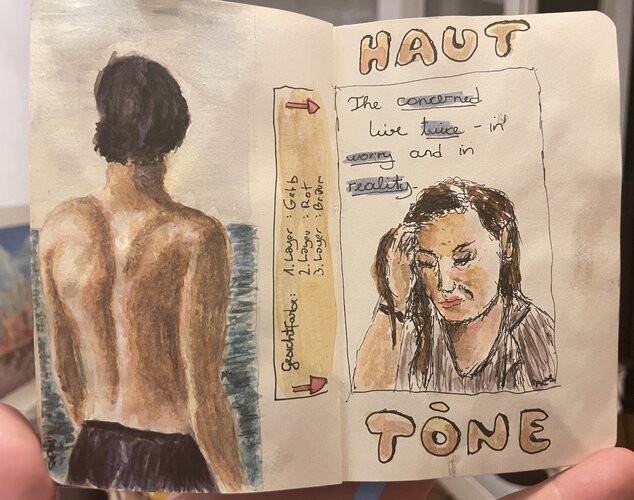 HAUT
The concerned
live twice - in
worry and in
reality.
Gesichtfarbe: 1. Layer : Gelb
2. Layer : Rot
3. Layer : Braun
TÒNE